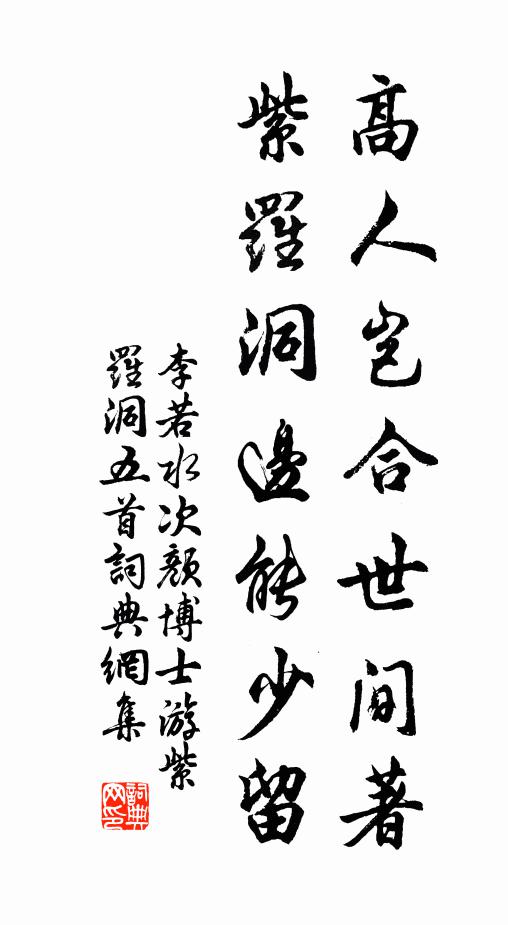 高人豈合世間著
紫羅洞邊能少留
李若水次顏博士游紫
羅洞五首詞典網集
詞典
网印